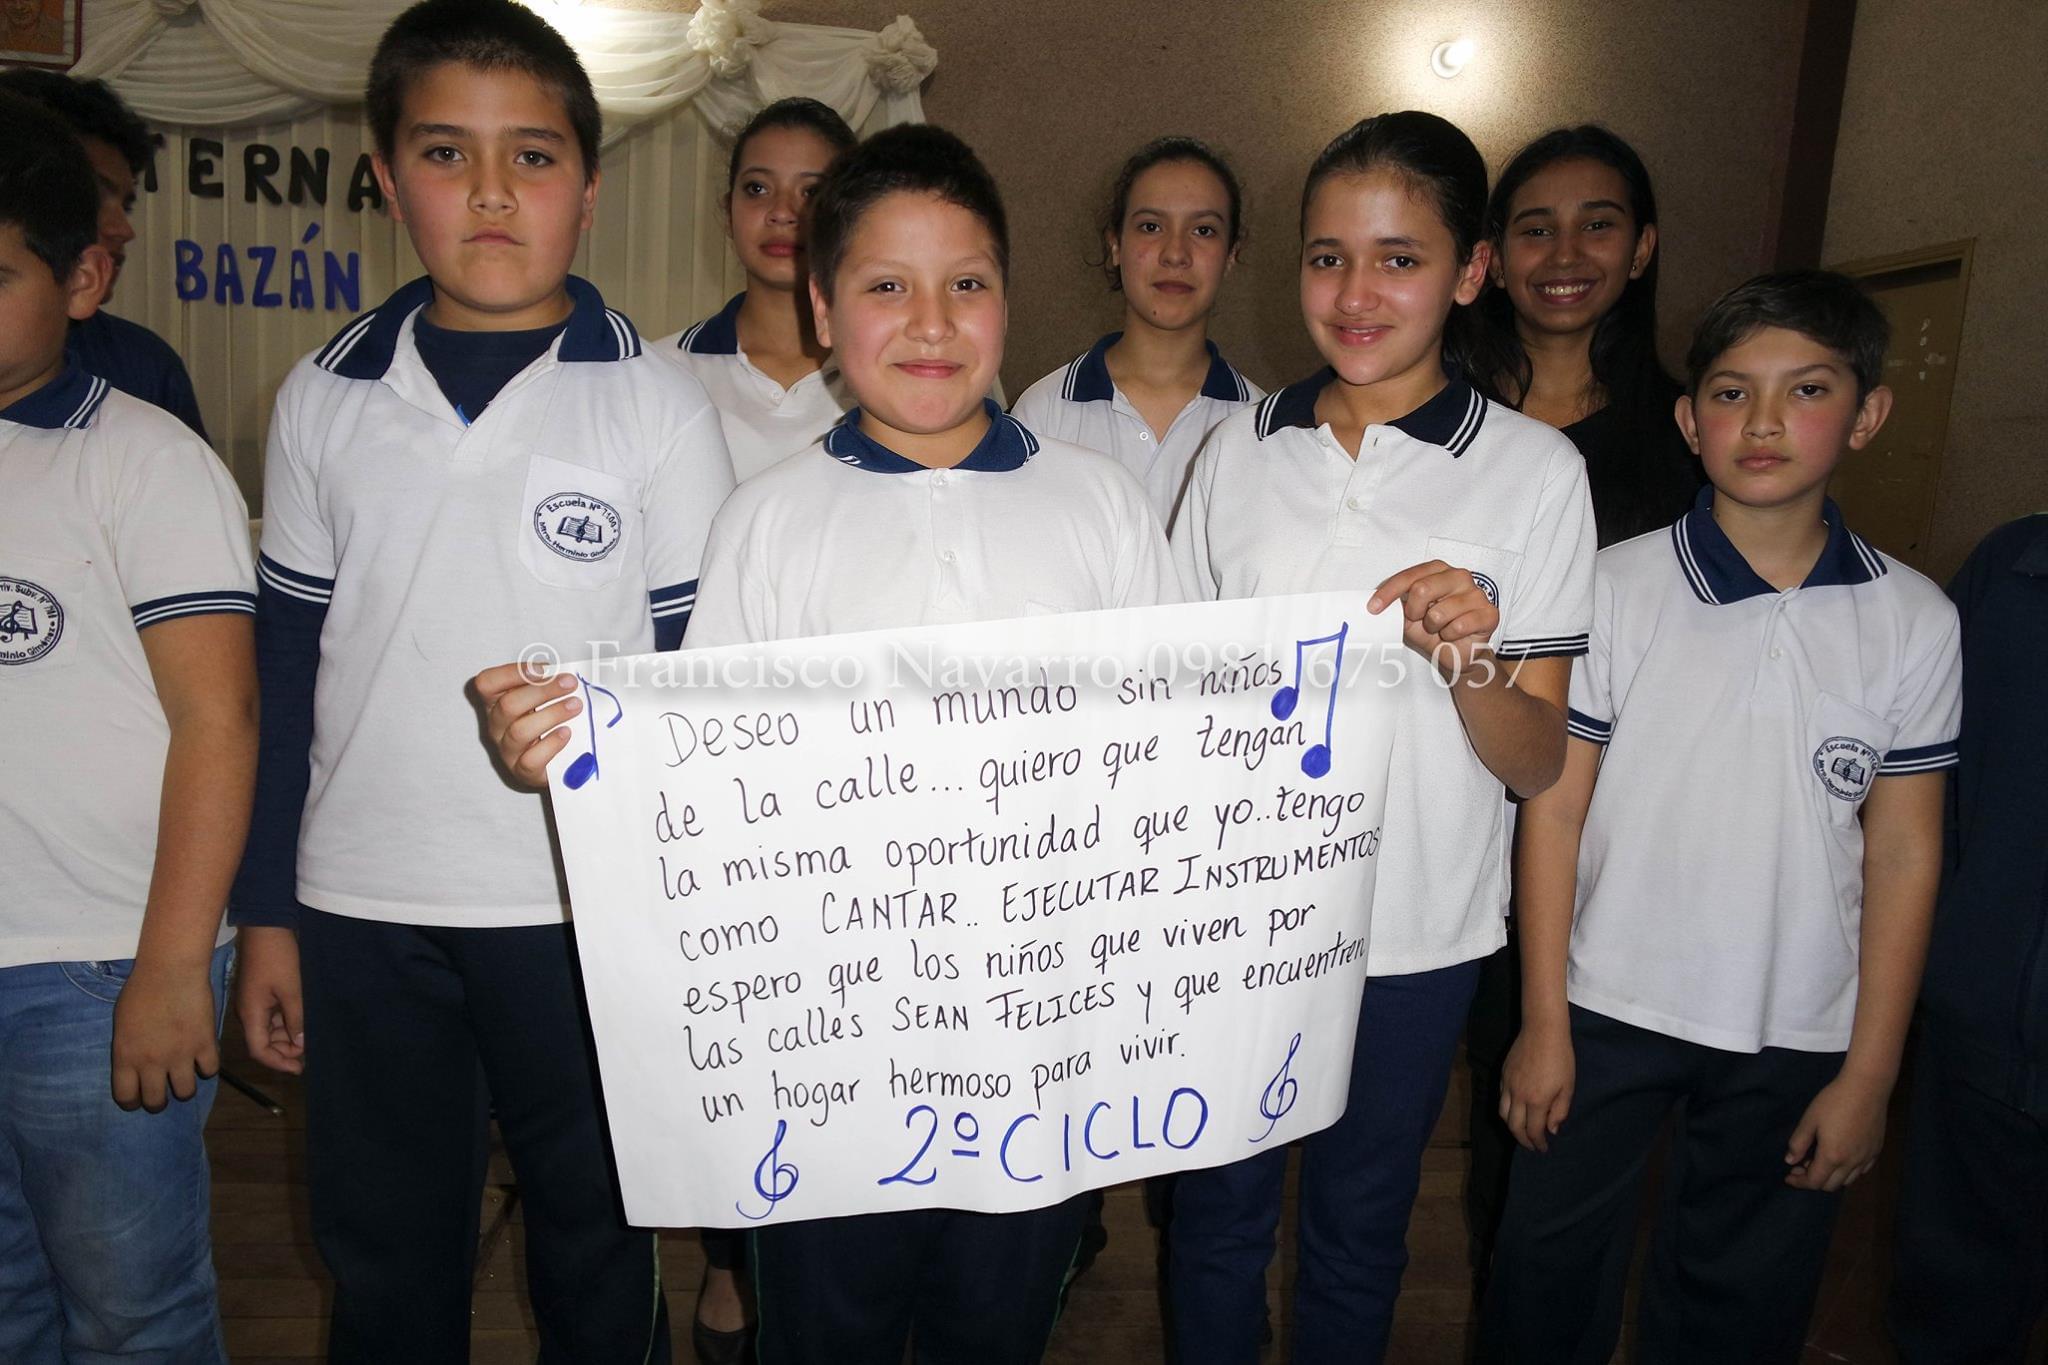 TERNA
BAZÁN
Escuela Nº 7100
Mtro. Herminio Giménez
© Francisco Navarro 0981 675 057
Deseo un mundo sin niños
de la calle... quiero que tengan
la misma oportunidad que yo..tengo
como CANTAR.. EJECUTAR INSTRUMENTOS
espero que los niños que viven por
las calles SEAN FELICES y que encuentren
un hogar hermoso para vivir.
2º CICLO
Escuela Nº